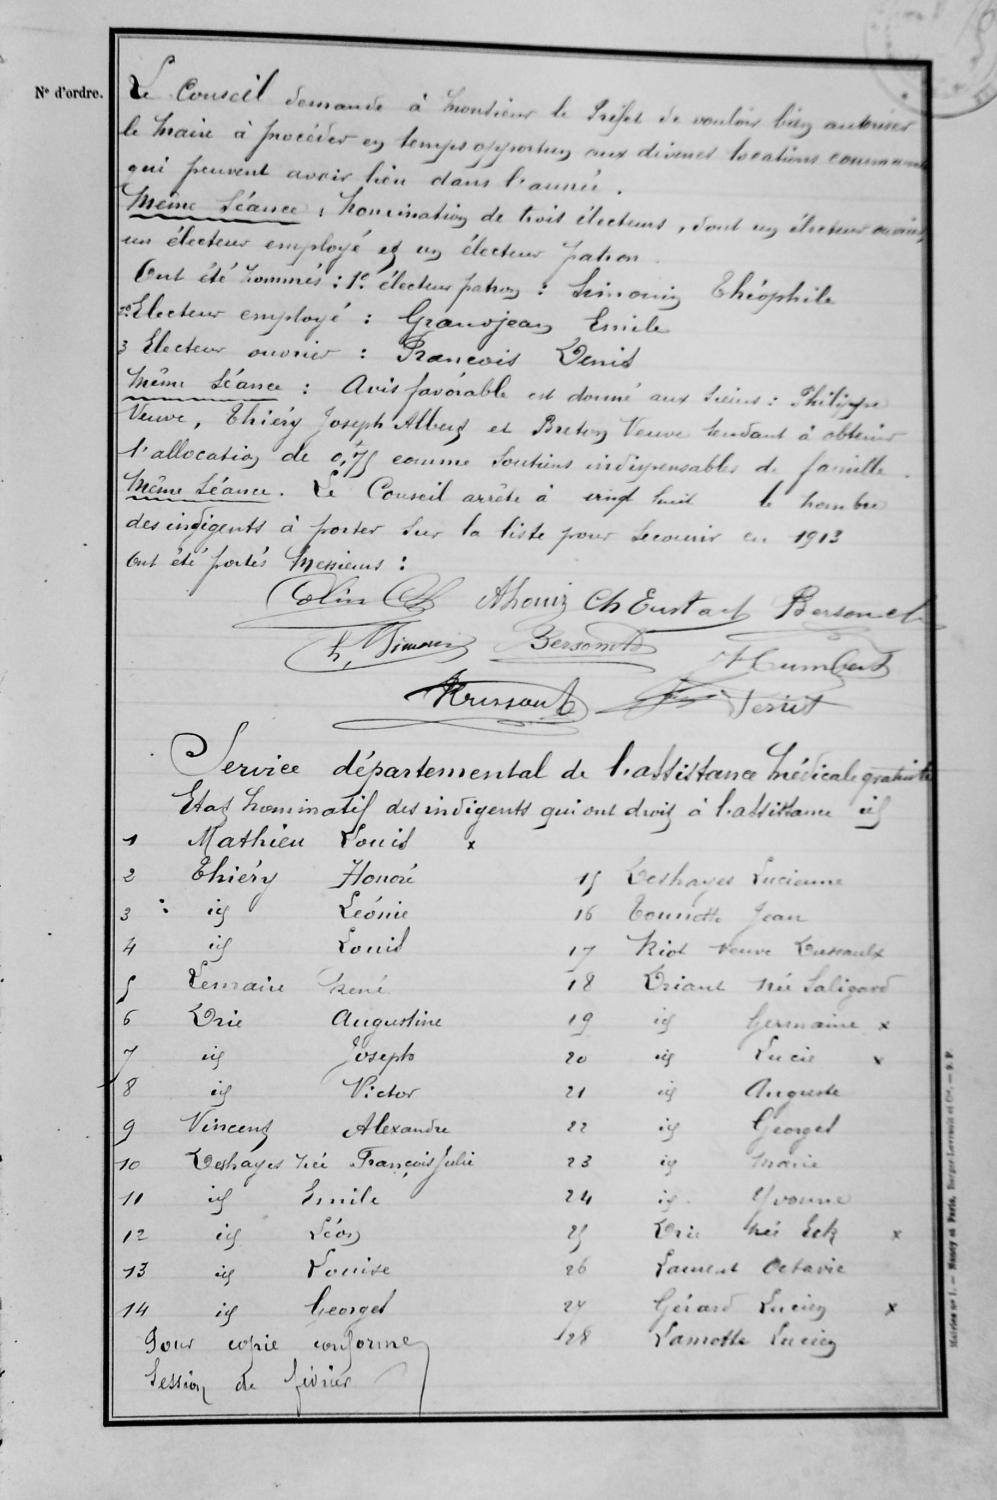 N° d'ordre.
Le Conseil demande à Monsieur le Préfet de vouloir bien autoriser
le Maire à procéder en temps opportun aux diverses locations
qui peuvent avoir lieu dans l'année.
Même Séance : Nomination de trois électeurs, dont un électeur ouvrier,
un électeur employé et un électeur patron.
Ont été nommés : 1° électeur patron : Simonin Théophile
2° Electeur employé : Grandjean Emile
3 Electeur ouvrier : François Denis
Même Séance : Avis favorable est donné aux sieurs : Philippe
Veuve, Thiéry Joseph Albert et Breton Veuve tendant à obtenir
l'allocation de 0,75 comme soutiens indispensables de famille.
Même Séance. Le Conseil arrête à vingt huit le nombre
des indigents à porter sur la liste pour secourir en 1913
Ont été portés Messieurs :
Colin Ch Eustache
Humbert
Service départemental de l'assistance Médicale gratuite
Etat nominatif des indigents qui ont droit à l'assistance id
1 Mathieu Louis x
2 Thiéry Honoré
3 id Léonie
4 id Louis
5 Lemaire René
6 Drie Augustine
7 id Joseph
8 id Victor
9 Vincent Alexandre
10 Deshayes née François Julie
11 id Emile
12 id Léon
13 id Louise
14 id Georges
15 Deshayes Lucienne
16 Jean
17 Riot Veuve Dussaulx
18 Driant née Saligard
19 id Germaine x
20 id Lucie x
21 id Auguste
22 id Georges
23 id Marie
24 id Yvonne
25 Drie née Eck x
26 Laurent Octavie
27 Gérard Lucien x
28 Lamotte Lucien
Pour copie conforme
Session de février
Nancy et Paris. Berger-Levrault et Cie.